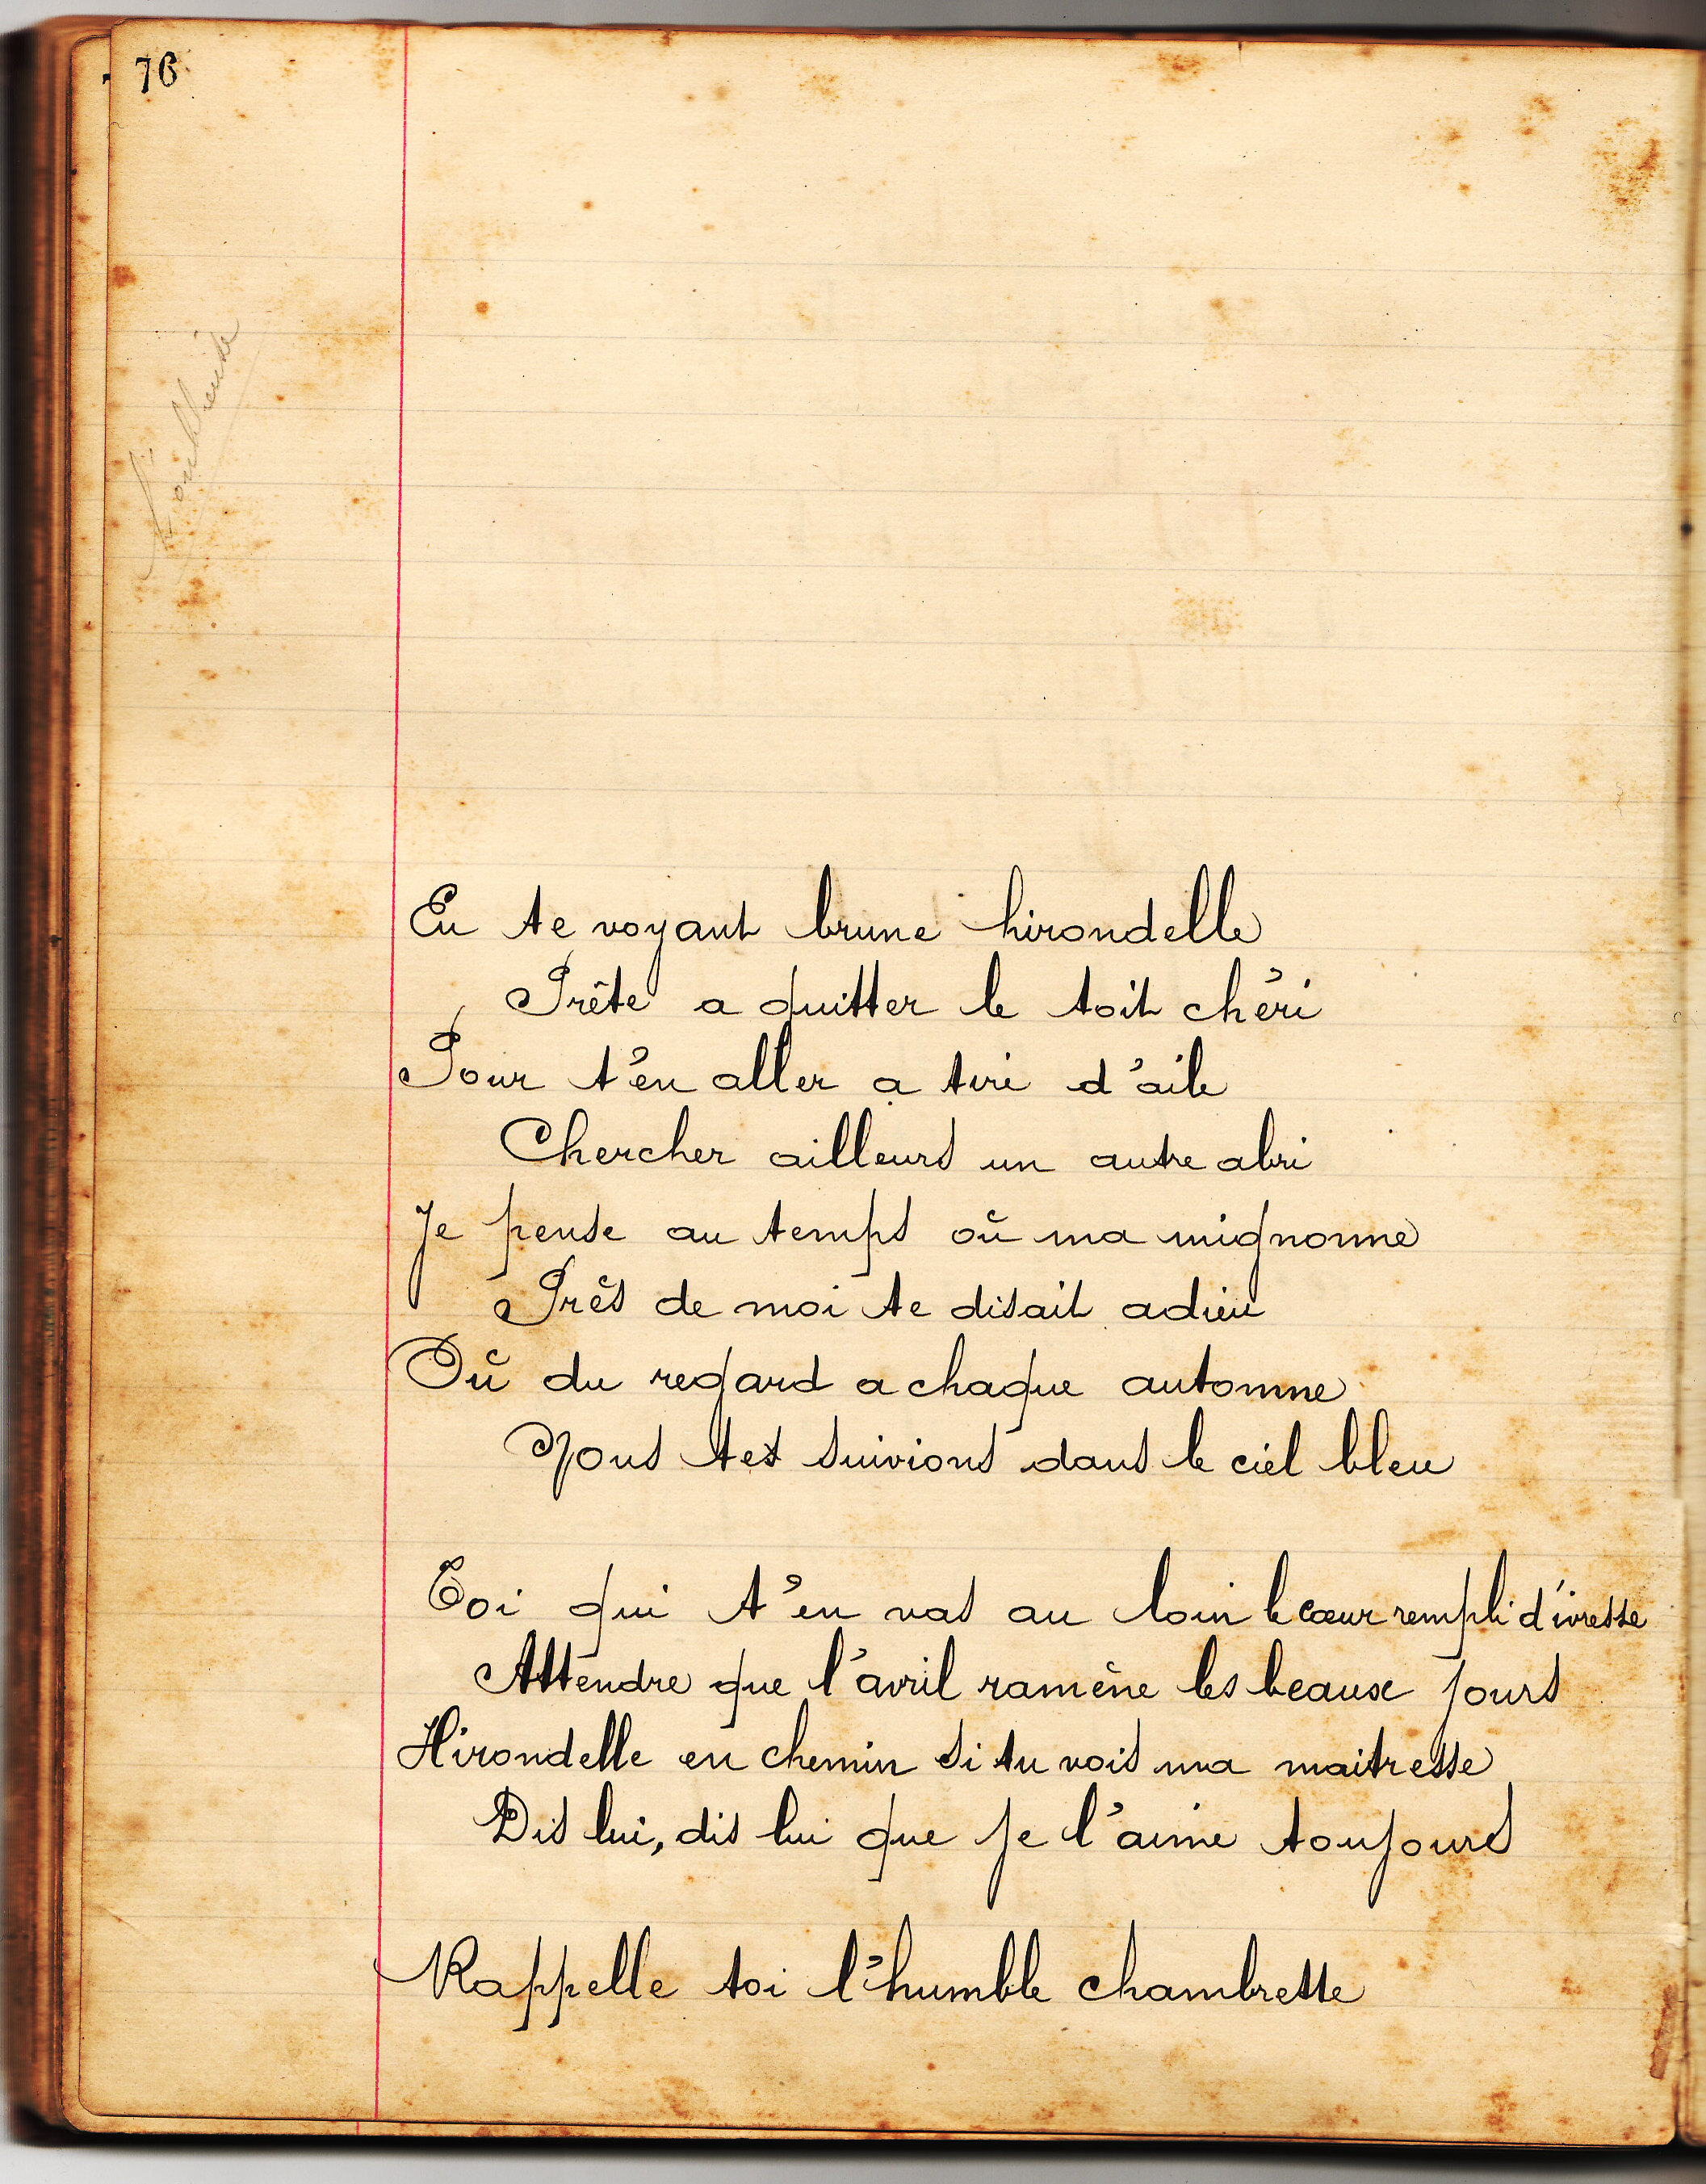 76
En te voyant brune hirondelle
Prête a quitter le toit chéri
Pour t'en aller a tire d'aile
Chercher ailleurs un autre abri
Je pense au temps où ma mignonne
Près de moi te disait adieu
Où du regard a chaque automne
Nous tes suivions dans le ciel bleu
Toi qui t'en vas au loin le cœur rempli d'ivresse
Attendre que l'avril ramène les beaux jours
Hirondelle en chemin si tu vois ma maitresse
Dis lui, dis lui que je l'aime toujours
Rappelle toi l'humble chambrette